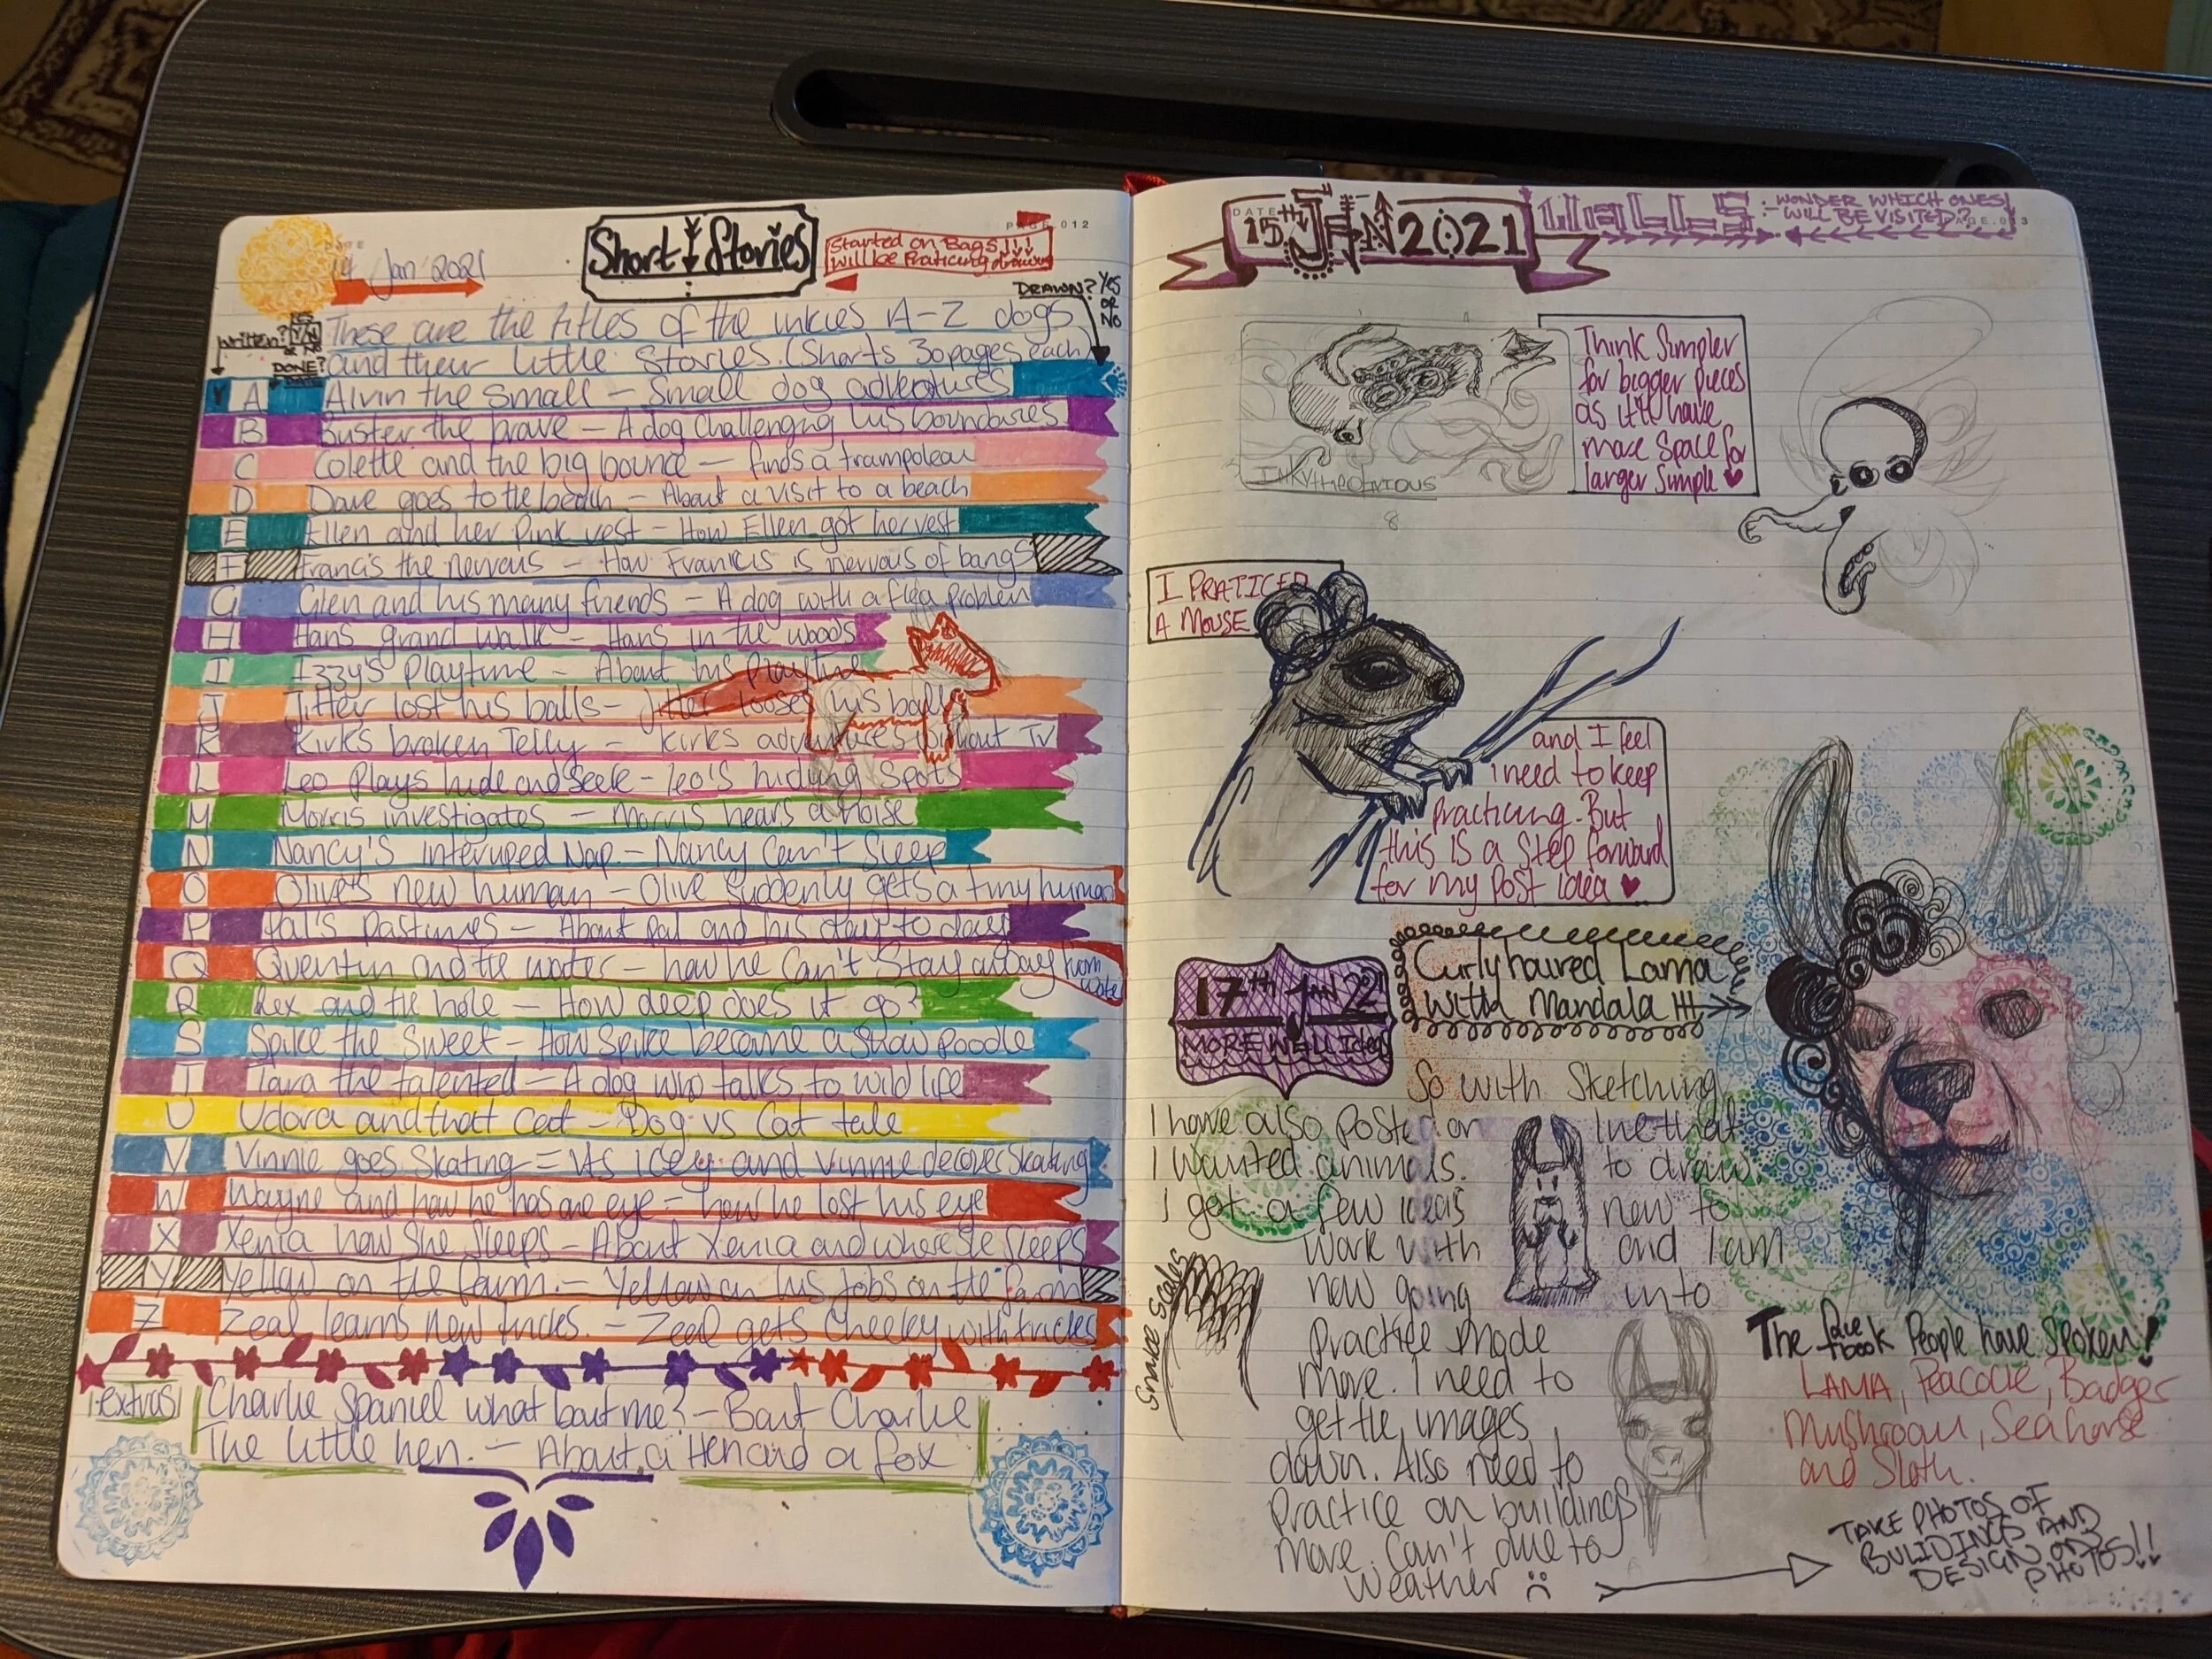 DATE
14 Jan 2021
Short Stories
Started on Bags!!!
will be Praticing
PAGE 012
DRAWN? Yes
or
No
Written?
Y/N
DONE?
These are the titles of the inkies A-Z dogs
and their little Stories. (Shorts 30pages each)
Y A Alvin the small - Small dog adventures
B Buster the brave - A dog Challenging his boundaries
C Colette and the big bounce - finds a trampoleau
D Dave goes to the beach - About a visit to a beach
E Ellen and her Pink vest - How Ellen got her vest
F Francis the nervous - How Francis is nervous of bangs
G Glen and his many friends - A dog with a flea problem
H Hans grand walk - Hans in the woods
I Izzy's Playtime - About his Playtime
J Jitter lost his balls - Jitter looses his balls
K Kirk's broken Telly - Kirks advantaces without TV
L Leo Plays hide and seek - leo's hiding Spots
M Morris investigates - Morris hears a noise
N Nancy's interuped Nap - Nancy Can't Sleep
O Olive's new human - Olive Suddenly gets a tiny human
P Pal's Pastimes - About Pal and his day to day
Q Quentin and the water - how he Can't Stay away from water
R Rex and the hole - How deep does it go?
S Spike the Sweet - How Spike become a Show poodle
T Tara the talented - A dog who talks to wild life
U Udora and that Cat - Dog vs Cat tale
V Vinnie goes Skating = It's icey and Vinnie decovers Skating
W Wayne and how he has one eye = how he lost his eye
X Xenia how She Sleeps - About Xenia and where She Sleeps
Y Yellow on the farm. - Yellow on his Jobs on the farm
Z Zeal learns new tricks. - Zeal gets Cheeky with tricks
extras
Charlie Spaniel what bout me? - Bout Charlie
The little hen. - About a Hen and a fox
DATE
15th JAN 2021
WALLS - WONDER WHICH ONES
WILL BE VISITED?
Think Simpler
for bigger pieces
as it'll have
more Space for
larger Simple
8
I PRATICED
A MOUSE
and I feel
I need to keep
practicing. But
this is a Step forward
for my Post idea
17th Jan 2021
MORE WELL Ideas
Curly haired Lama
with Mandala !!!
So with Sketching
I have also Posted on line that
I wanted animals. to draw.
I got a few ideas new to
work with and I am
now going unto
Practice mode
more. I need to
get the images
down. Also need to
Practice on buildings
more. Can't due to
Weather :(
Snake Scales
The face book People have Spoken!
LAMA, Peacock, Badger
Mushroom, Sea horse
and Sloth.
TAKE PHOTOS OF
BULIDINGS AND
DESIGN ON
PHOTOS!!